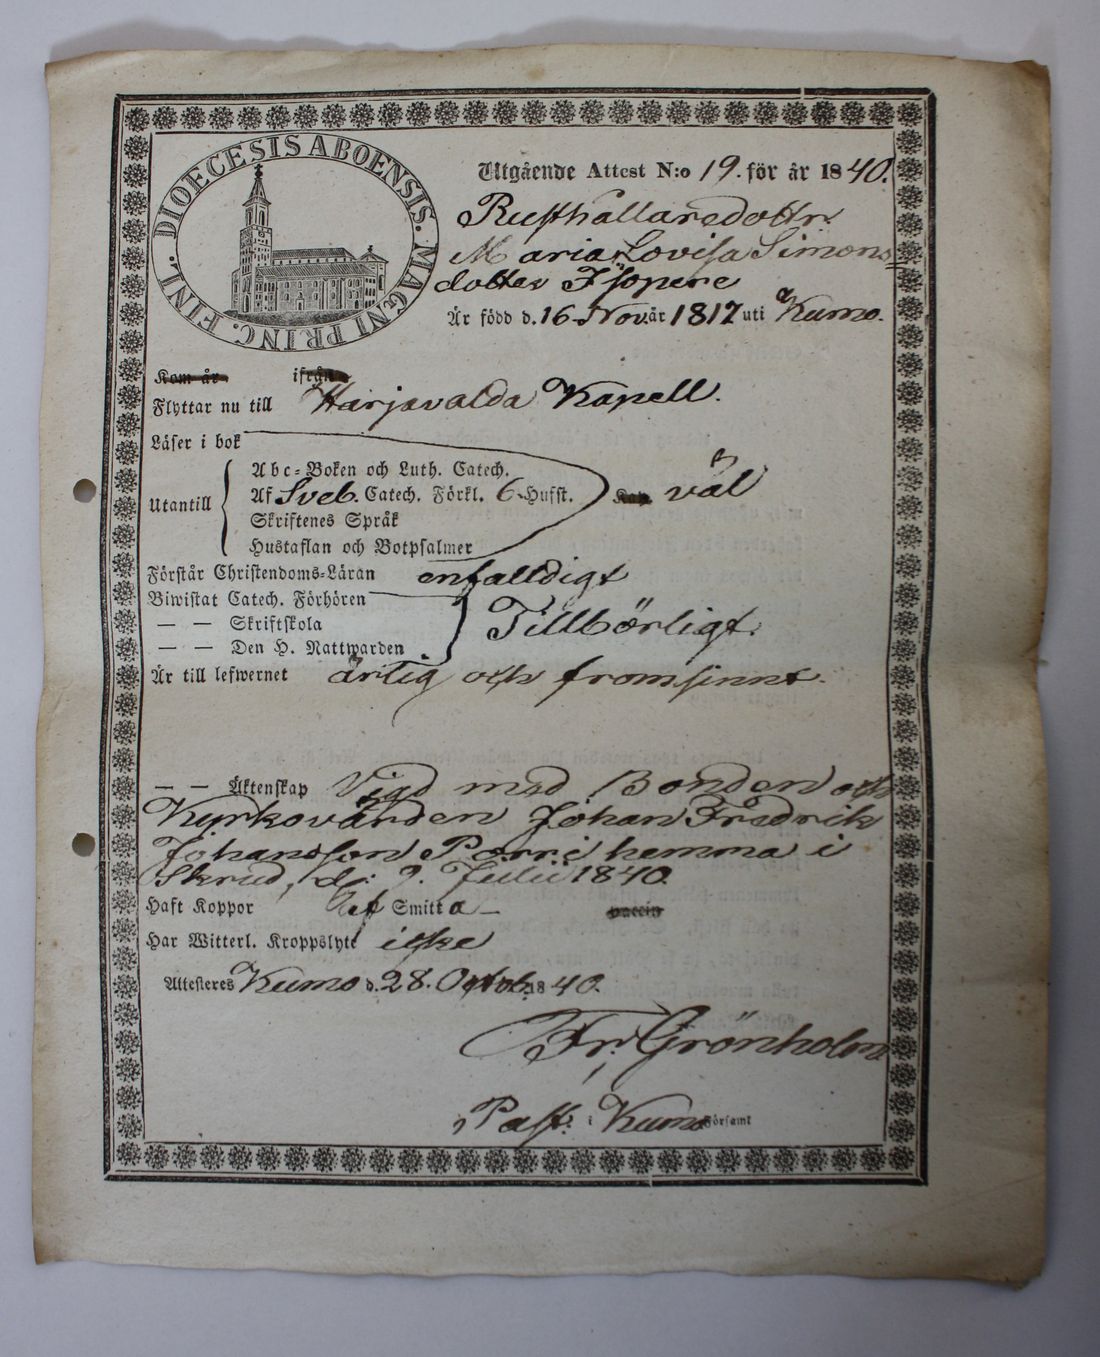 DIOECESIS ABOENSIS. MAGNI PRINC. FINL.
Utgående Attest N:o 19. för år 1840.
Rusthållaredottr
Maria Lovisa Simons=
dotter Isopere
Är född d. 16 Nov. år 1817 uti Kumo.
Kom år ifrån
Flyttar nu till Harjavalda Kapell.
Läser i bok
Utantill
Abc-Boken och Luth. Catech.
Af Sveb. Catech. Förkl. 6 Hufst. väl
Skriftenes Språk
Hustaflan och Botpsalmer
Förstår Christendoms-Läran enfalldigt
Biwistat Catech. Förhören
— — Skriftskola Tillbörligt.
— — Den H. Nattwarden
Är till lefwernet ärlig och fromsinnt.
— — Äktenskap Vigd med Bonden och
Kyrkovärden Johan Fredrik
Johansson Pärri hemma i
Skrud, d. 9. Julii 1840.
Haft Koppor Af Smitta
Har Witterl. Kroppslyte icke
Attesteres Kumo d. 28. Octob. 1840.
Fr. Grönholm
Past. i Kumo Församl